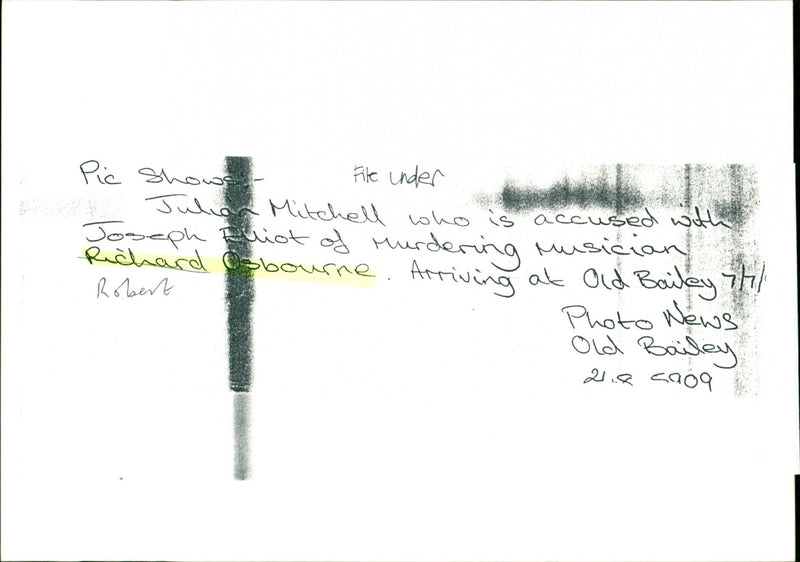 Pic Shows:- File under
Julian Mitchell who is accused with
Joseph Elliot of Murdering Musician
Richard Osbourne. Arriving at Old Bailey 7/7/
Robert
Photo News
Old Bailey